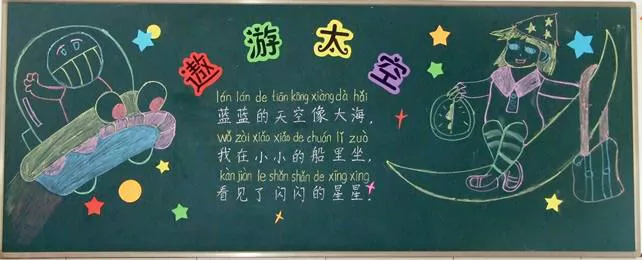 遨游太空
lán lán de tiān kōng xiàng dà hǎi
蓝蓝的天空像大海，
wǒ zài xiǎo xiǎo de chuán lǐ zuò
我在小小的船里坐，
kàn jiàn le shǎn shǎn de xīng xing
看见了闪闪的星星！